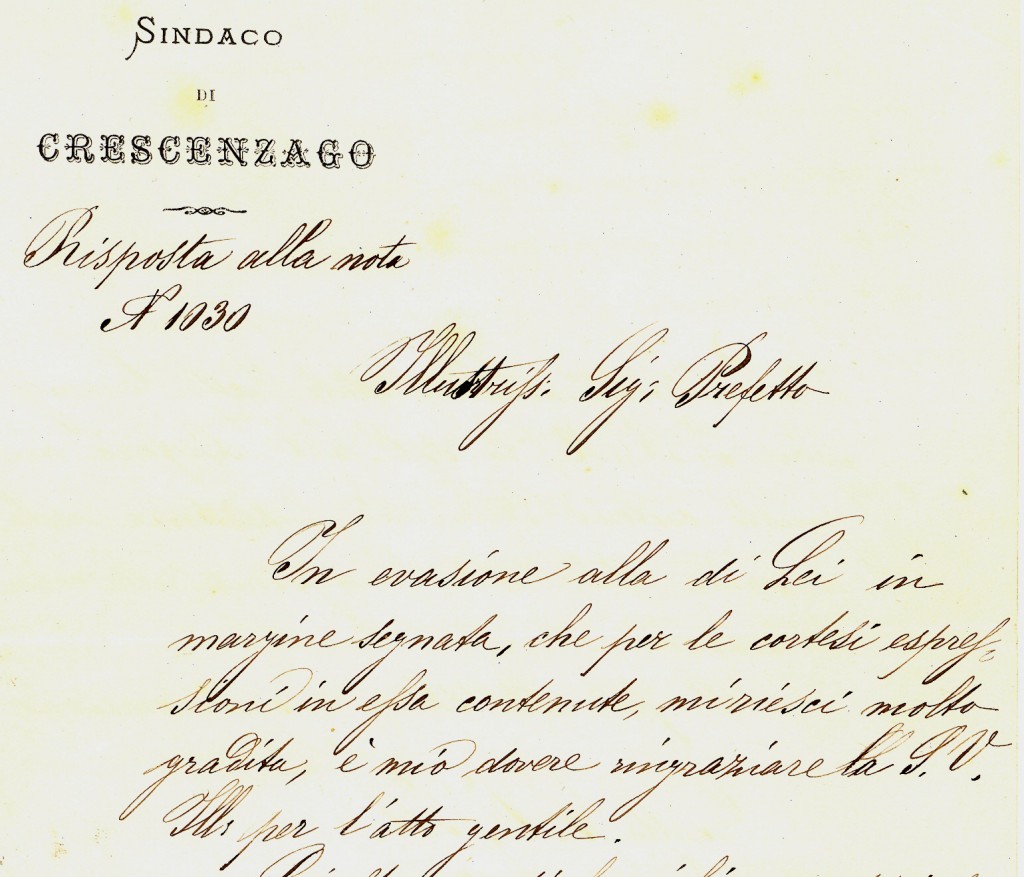 SINDACO
DI
CRESCENZAGO
Risposta alla nota
N 1030
Illustriss: Sig: Prefetto
In evasione alla di Lei in
margine segnata, che per le cortesi espres-
sioni in essa contenute, mi riescì molto
gradita, è mio dovere ringraziare la S. V.
Ill: per l'atto gentile.